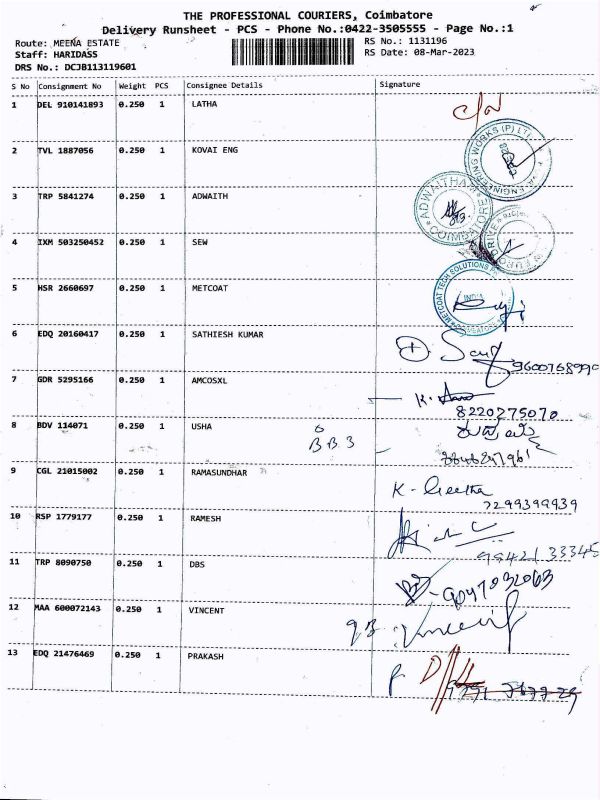 THE PROFESSIONAL COURIERS, Coimbatore
Delivery Runsheet - PCS - Phone No.:0422-3505555 - Page No.:1
Route: MEENA ESTATE
RS No.: 1131196
Staff: HARIDASS
RS Date: 08-Mar-2023
DRS No.: DCJB113119601
S No Consignment No Weight PCS Consignee Details Signature
1 DEL 910141893 0.250 1 LATHA
2 TVL 1887056 0.250 1 KOVAI ENG
3 TRP 5841274 0.250 1 ADWAITH
ADWAITHAM
COIMBATORE
4 IXM 503250452 0.250 1 SEW
5 HSR 2660697 0.250 1 METCOAT
METCOAT TECH SOLUTIONS
INDIA
6 EDQ 20160417 0.250 1 SATHIESH KUMAR
7 GDR 5295166 0.250 1 AMCOSXL
8220275070
8 BDV 114071 0.250 1 USHA
9 CGL 21015002 0.250 1 RAMASUNDHAR
K - Geetha
7299399939
10 RSP 1779177 0.250 1 RAMESH
9942133345
11 TRP 8090750 0.250 1 DBS
12 MAA 600072143 0.250 1 VINCENT
Vincent
13 EDQ 21476469 0.250 1 PRAKASH